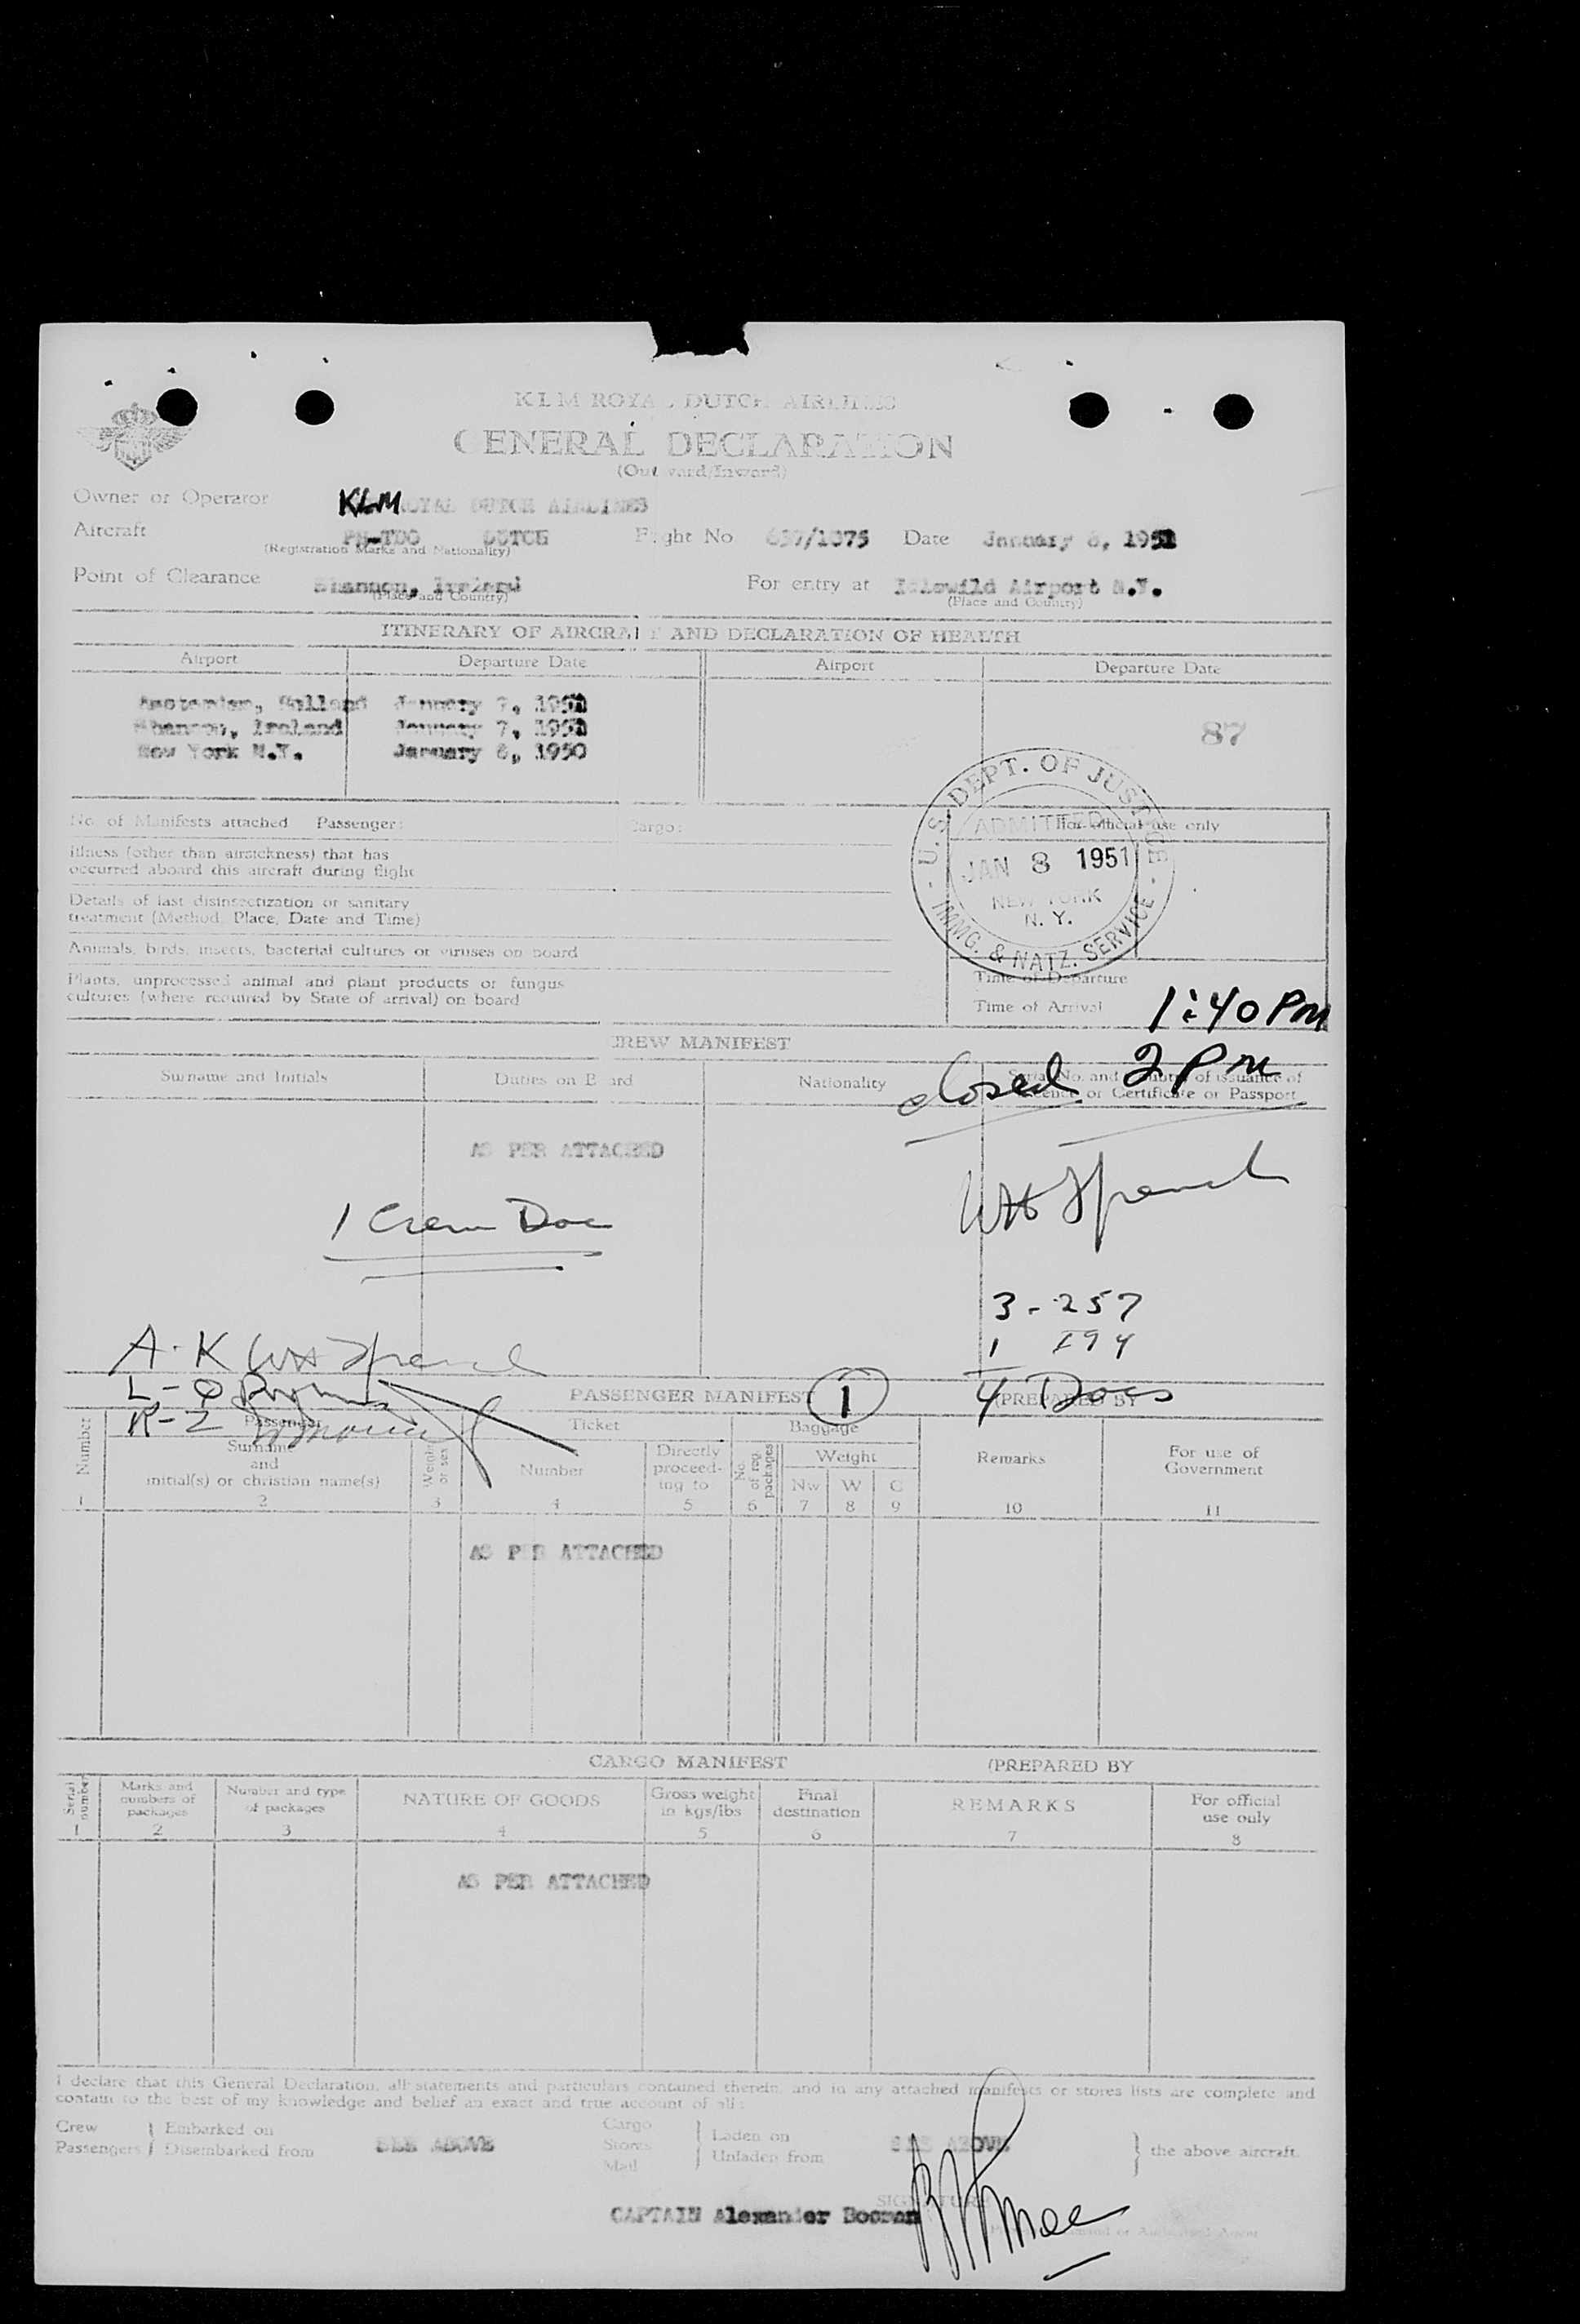 KLM ROYAL DUTCH AIRLINES
GENERAL DECLARATION
(Outward/Inward)
Owner or Operator KLM ROYAL DUTCH AIRLINES
Aircraft PH-TDO DUTCH Flight No 657/1075 Date January 8, 1951
(Registration Marks and Nationality)
Point of Clearance Shannon, Ireland For entry at Idlewild Airport N.Y.
(Place and Country) (Place and Country)
ITINERARY OF AIRCRAFT AND DECLARATION OF HEALTH
Airport Departure Date Airport Departure Date
Amsterdam, Holland January 7, 1951
Shannon, Ireland January 7, 1951
New York N.Y. January 8, 1950
87
U.S. DEPT. OF JUSTICE
ADMITTED
JAN 8 1951
NEW YORK
N. Y.
IMMG. & NATZ. SERVICE
No. of Manifests attached Passenger: Cargo: For official use only
Illness (other than airsickness) that has
occurred aboard this aircraft during flight
Details of last disinsectization or sanitary
treatment (Method, Place, Date and Time)
Animals, birds, insects, bacterial cultures or viruses on board
Plants, unprocessed animal and plant products or fungus
cultures (where required by State of arrival) on board
Time of Departure
Time of Arrival 1:40 PM
CREW MANIFEST
closed 2 PM
Surname and Initials Duties on Board Nationality Serial No. and Country of issuance of
Licence or Certificate or Passport
AS PER ATTACHED
1 Crew Doc
3 - 257
1 194
4 Docs
A-K
L-Q
R-Z
PASSENGER MANIFEST 1 (PREPARED BY
Number
Passenger
Surname
and
initial(s) or christian name(s)
Weight or sex
Ticket
Number
Directly
proceed-
ing to
Baggage
No. of reg. packages
Weight
Nw W C
Remarks
For use of
Government
1 2 3 4 5 6 7 8 9 10 11
AS PER ATTACHED
CARGO MANIFEST (PREPARED BY
Serial number
Marks and
numbers of
packages
Number and type
of packages
NATURE OF GOODS
Gross weight
in kgs/lbs
Final
destination
REMARKS
For official
use only
1 2 3 4 5 6 7 8
AS PER ATTACHED
I declare that this General Declaration, all statements and particulars contained therein, and in any attached manifests or stores lists are complete and
contain to the best of my knowledge and belief an exact and true account of all:
Crew
Passengers
Embarked on
Disembarked from
SEE ABOVE
Cargo
Stores
Mail
Laden on
Unladen from
SEE ABOVE
the above aircraft.
SIGNATURE
CAPTAIN Alexander